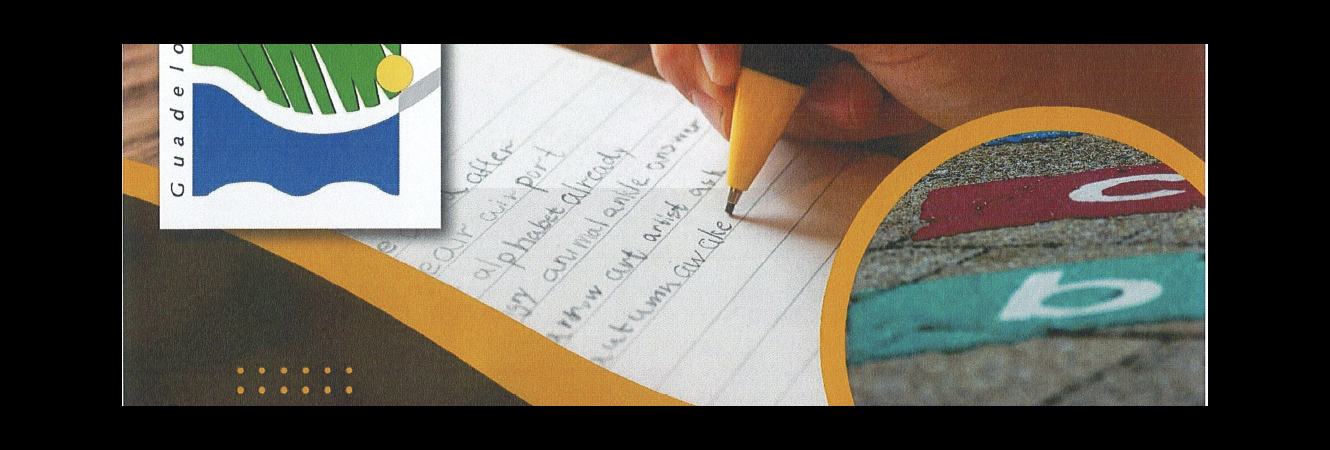 Guadelo
after
air port
alphabet already
animal ankle answer
arrow art artist ask
autumn awake
c
b